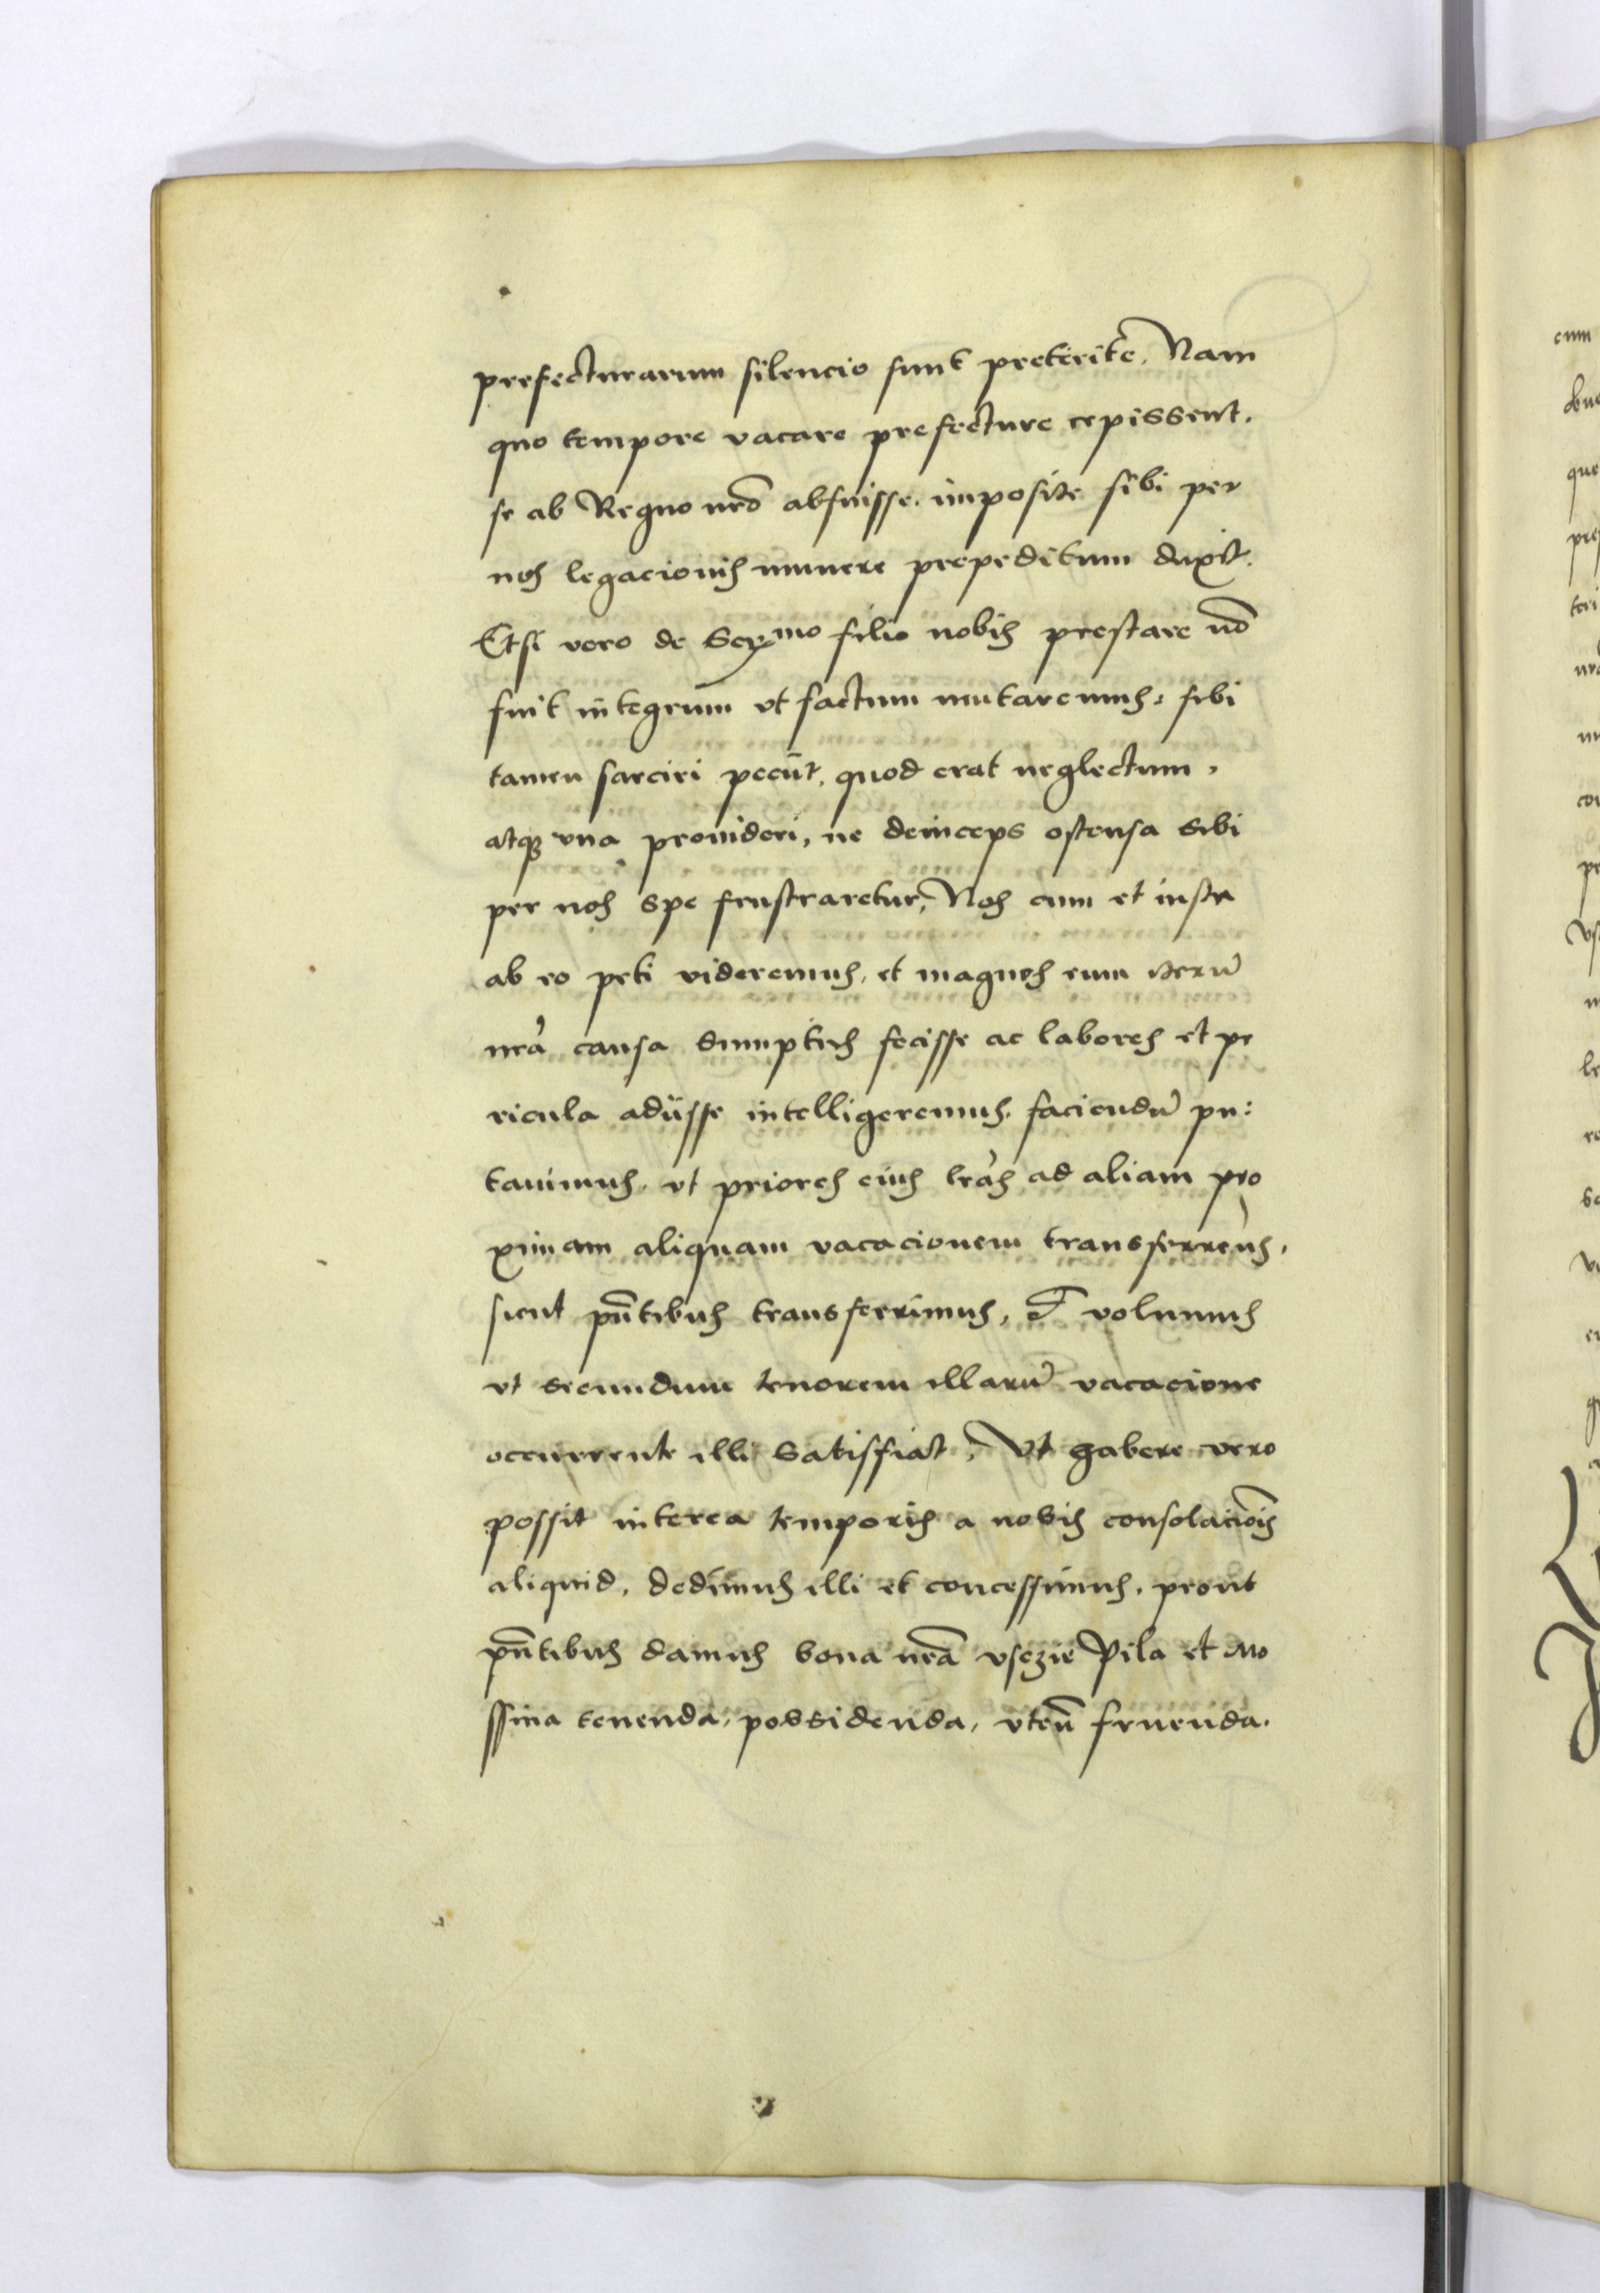 prefecturarum silencio sunt preterite. Nam
quo tempore vacare prefecture cepissent.
se ab Regno nr̃o abfuisse. imposite sibi per
nos legacionis munere prepeditum duxit.
Etsi vero de Serᵐᵒ filio nobis prestare nõ
fuit integrum vt factum mutaremus, sibi
tamen sarciri peciit, quod erat neglectum,
atqꝫ vna prouideri, ne deinceps ostensa sibi
per nos spe frustraretur, Nos cum et iusta
ab eo peti videremus, et magnos eum iterũ
nr̃a causa sumptus fecisse ac labores et pe
ricula adiisse intelligeremus. faciendũ pu:
tauimus, vt priores eius lr̃as ad aliam pro
ximam aliquam vacacionem transferrem̃us,
sicut pñtibus transferrimus, Et volumus
vt secundum tenorem illarũ vacacione
occurrente illi satisfiat, Vt habere vero
possit interea temporis a nobis consolacio̅is
aliquid, dedimus illi et concessimus, prout
pñtibus damus bona nr̃a vsczie Pila et Mo
ssina tenenda, possidenda, vteñ fruenda.